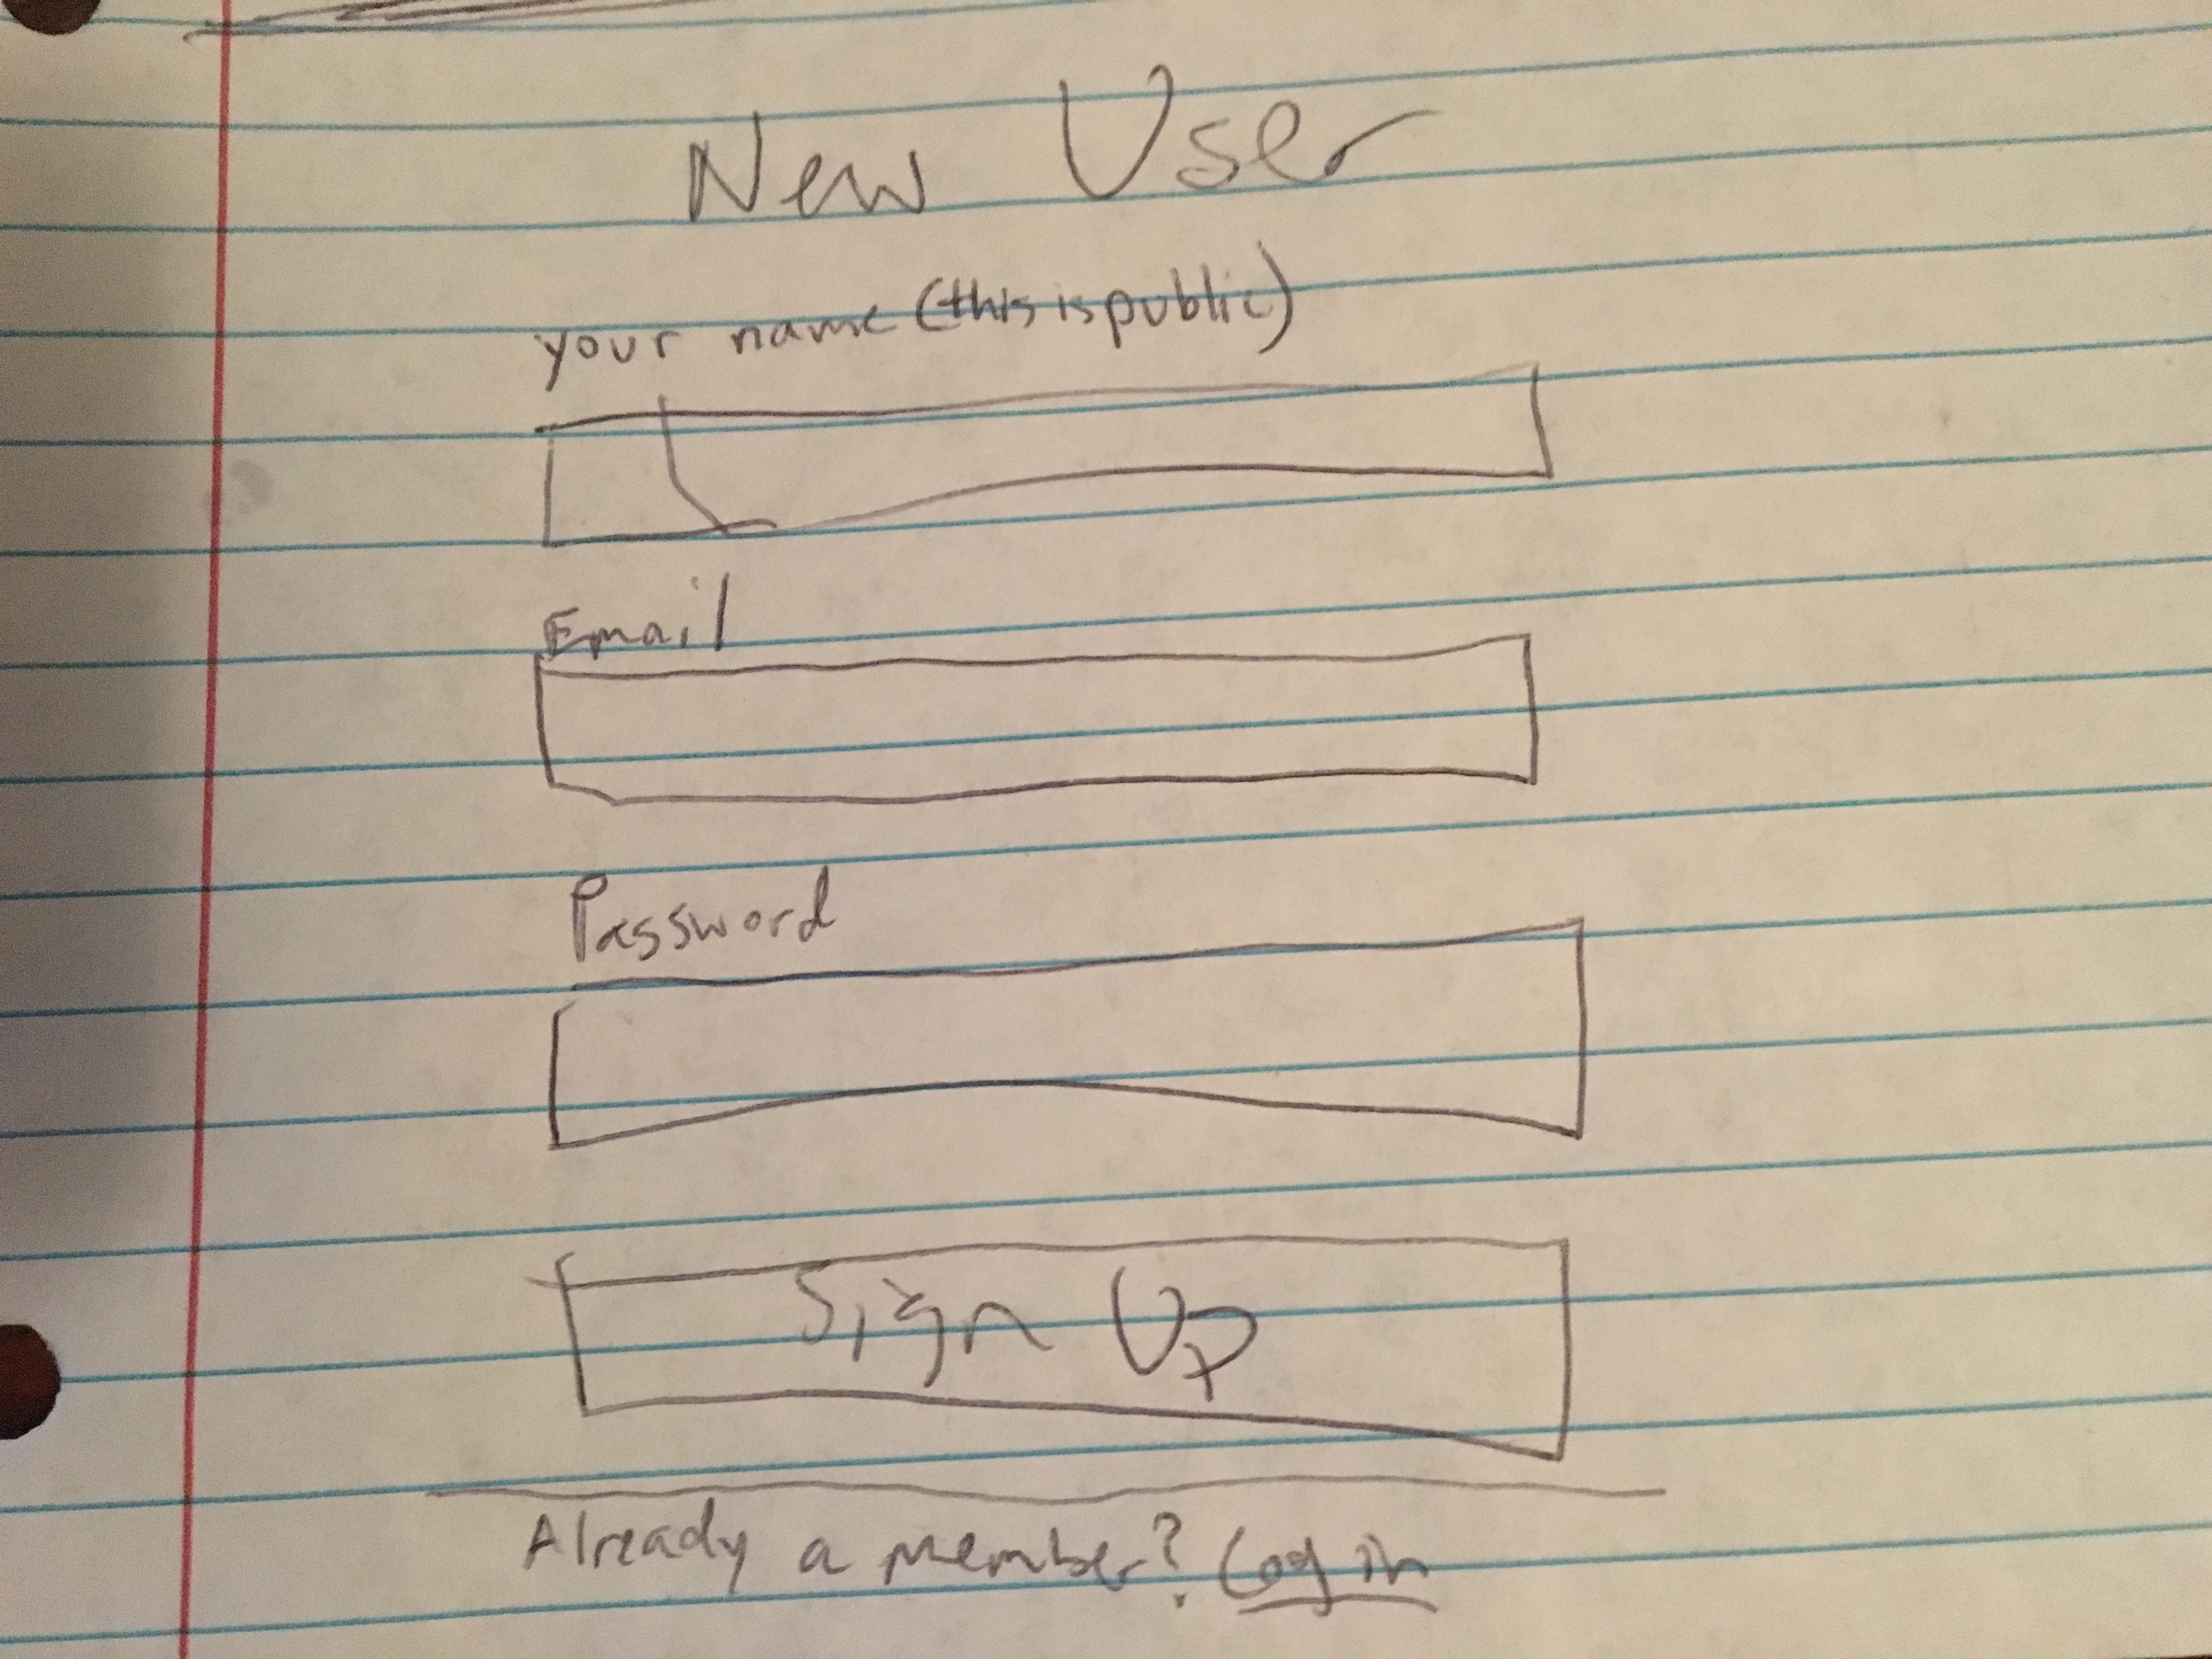 New User
your name (this is public)
Email
Password
Sign Up
Already a member? Log in